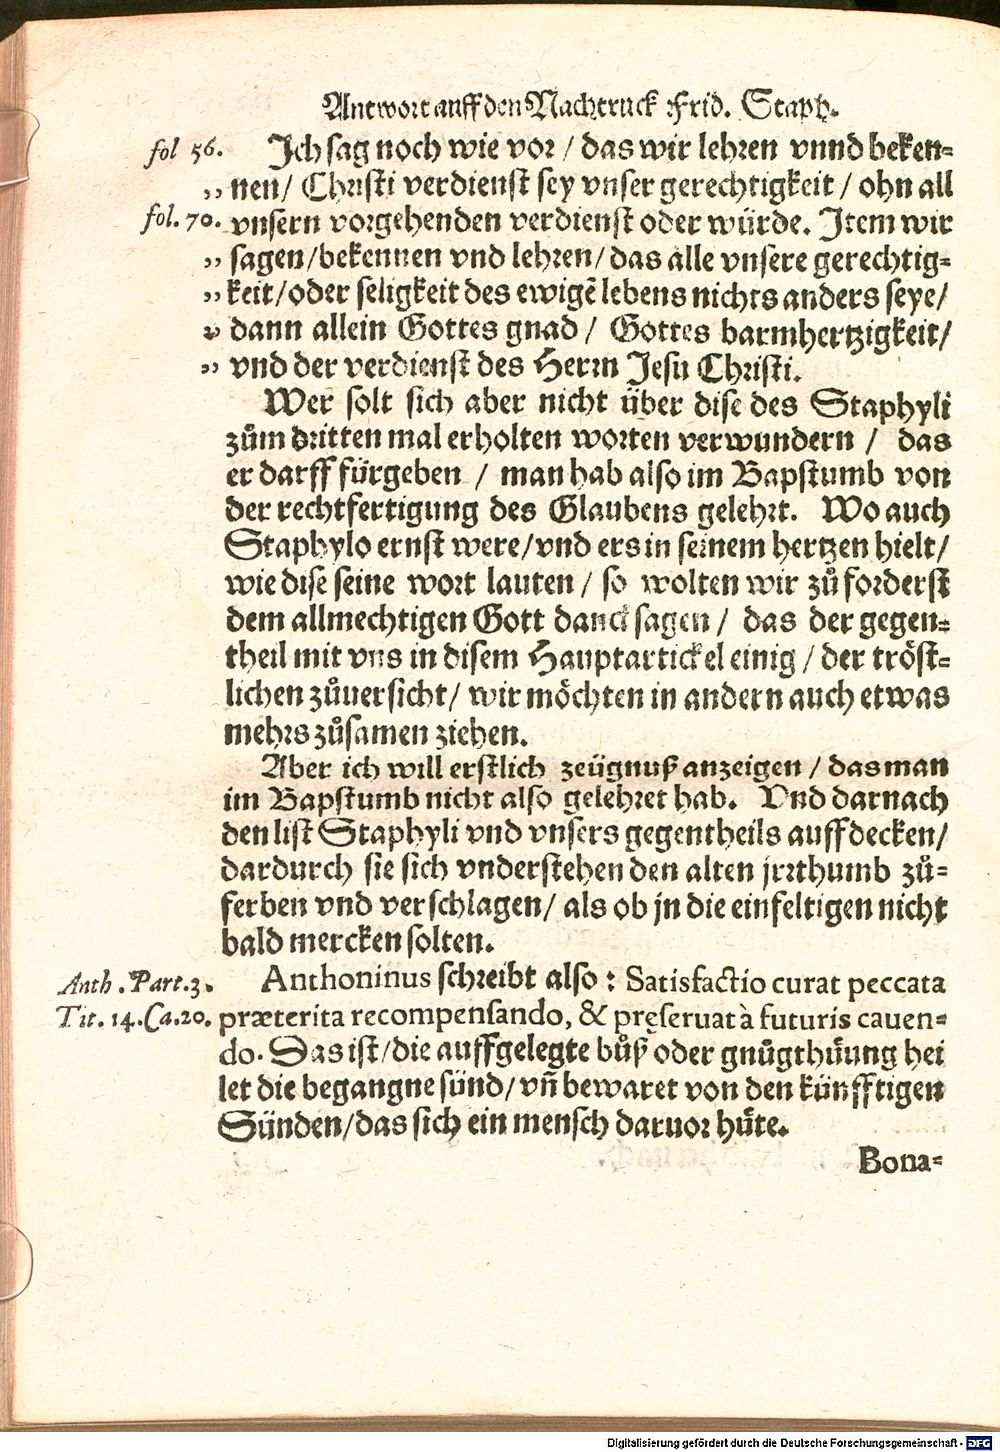 Antwort auff den Nachtruck Frid. Staph.
fol 56. Ich sag noch wie vor / das wir lehren vnnd beken-
,, nen / Christi verdienst sey vnser gerechtigkeit / ohn all
fol. 70. vnsern vorgehenden verdienst oder würde. Item wir
,, sagen / bekennen vnd lehren / das alle vnsere gerechtig-
,, keit / oder seligkeit des ewigẽ lebens nichts anders seye /
,, dann allein Gottes gnad / Gottes barmhertzigkeit /
,, vnd der verdienst des Herrn Jesu Christi.
Wer solt sich aber nicht über dise des Staphyli
zům dritten mal erholten worten verwundern / das
er darff fürgeben / man hab also im Bapstumb von
der rechtfertigung des Glaubens gelehrt. Wo auch
Staphylo ernst were / vnd ers in seinem hertzen hielt /
wie dise seine wort lauten / so wolten wir zů forderst
dem allmechtigen Gott danck sagen / das der gegen-
theil mit vns in disem Hauptartickel einig / der tröst-
lichen zůuersicht / wir möchten in andern auch etwas
mehrs zůsamen ziehen.
Aber ich will erstlich zeügnuß anzeigen / das man
im Bapstumb nicht also gelehret hab. Vnd darnach
den list Staphyli vnd vnsers gegentheils auffdecken /
dardurch sie sich vnderstehen den alten jrrthumb zů-
ferben vnd verschlagen / als ob jn die einfeltigen nicht
bald mercken solten.
Anth. Part. 3. Anthoninus schreibt also : Satisfactio curat peccata
Tit. 14. Ca. 20. præterita recompensando, & pręseruat à futuris cauen-
do. Das ist / die auffgelegte bůß oder gnůgthůung hei
let die begangne sünd / vñ bewaret von den künfftigen
Sünden / das sich ein mensch daruor hüte.
Bona-
Digitalisierung gefördert durch die Deutsche Forschungsgemeinschaft - DFG